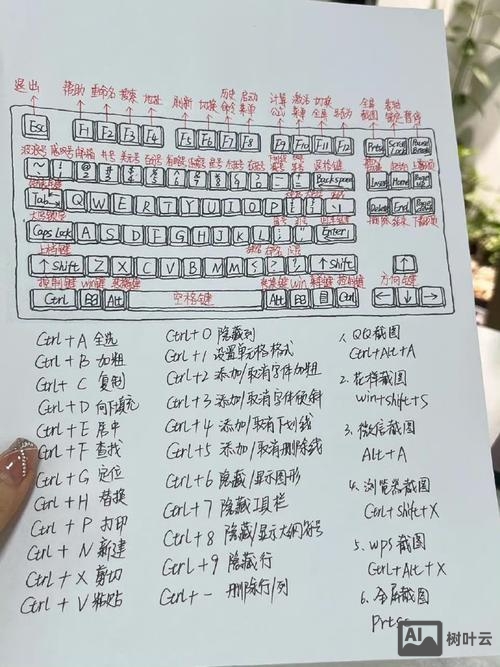 退出 帮助 重命名 搜索 地址 刷新 切换 历史命令 启动菜单 计算公式 激活菜单 切换全屏 另存为 全屏截图
Esc F1 F2 F3 F4 F5 F6 F7 F8 F9 F10 F11 F12 Prtsc Scroll Lock Pause Break
退格键
~ ! @ # $ % ^ & * Backspace Insert Home
Tab Q W E R T Y U I O P Delete End
Caps Lock A S D F G H J K L Enter
上档键
↑Shift Z X C V B N M ↑Shift ↑
控制键 win键 控制键 方向键
Ctrl Alt 空格键 Alt Ctrl ← ↓ →
Ctrl + A 全选
Ctrl + B 加粗
Ctrl + C 复制
Ctrl + D 向下填充
Ctrl + E 居中
Ctrl + F 查找
Ctrl + G 定位
Ctrl + H 替换
Ctrl + P 打印
Ctrl + N 新建
Ctrl + X 剪切
Ctrl + V 粘贴
Ctrl + 0 隐藏列
Ctrl + 1 设置单元格格式
Ctrl + 2 添加/取消字体加粗
Ctrl + 3 添加/取消字体倾斜
Ctrl + 4 添加/取消下划线
Ctrl + 5 添加/取消删除线
Ctrl + 6 隐藏/显示图形
Ctrl + 7 隐藏工具栏
Ctrl + 8 隐藏/显示大纲符号
Ctrl + 9 隐藏行
Ctrl + - 删除行/列
1. QQ截图
Ctrl+Alt+A
2. 花样截图
win+shift+S
3. 微信截图
Alt+A
4. 浏览器截图
Ctrl+Shift+X
5. WPS截图
Ctrl+Alt+X
6. 全屏截图
Prtsc
AI 树叶云